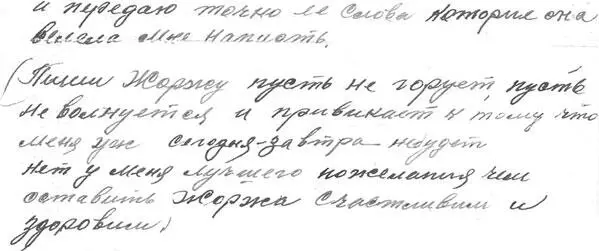 и передаю точно ее слова которие она
велела мне напиоть.
(Пиши Жоржу пусть не горует, пусть
не волнуется и привикает к тому что
меня уж сегодня-завтра небудет
нет у меня лучшего пожелания чем
оставить Жоржа счастливим и
здоровим)